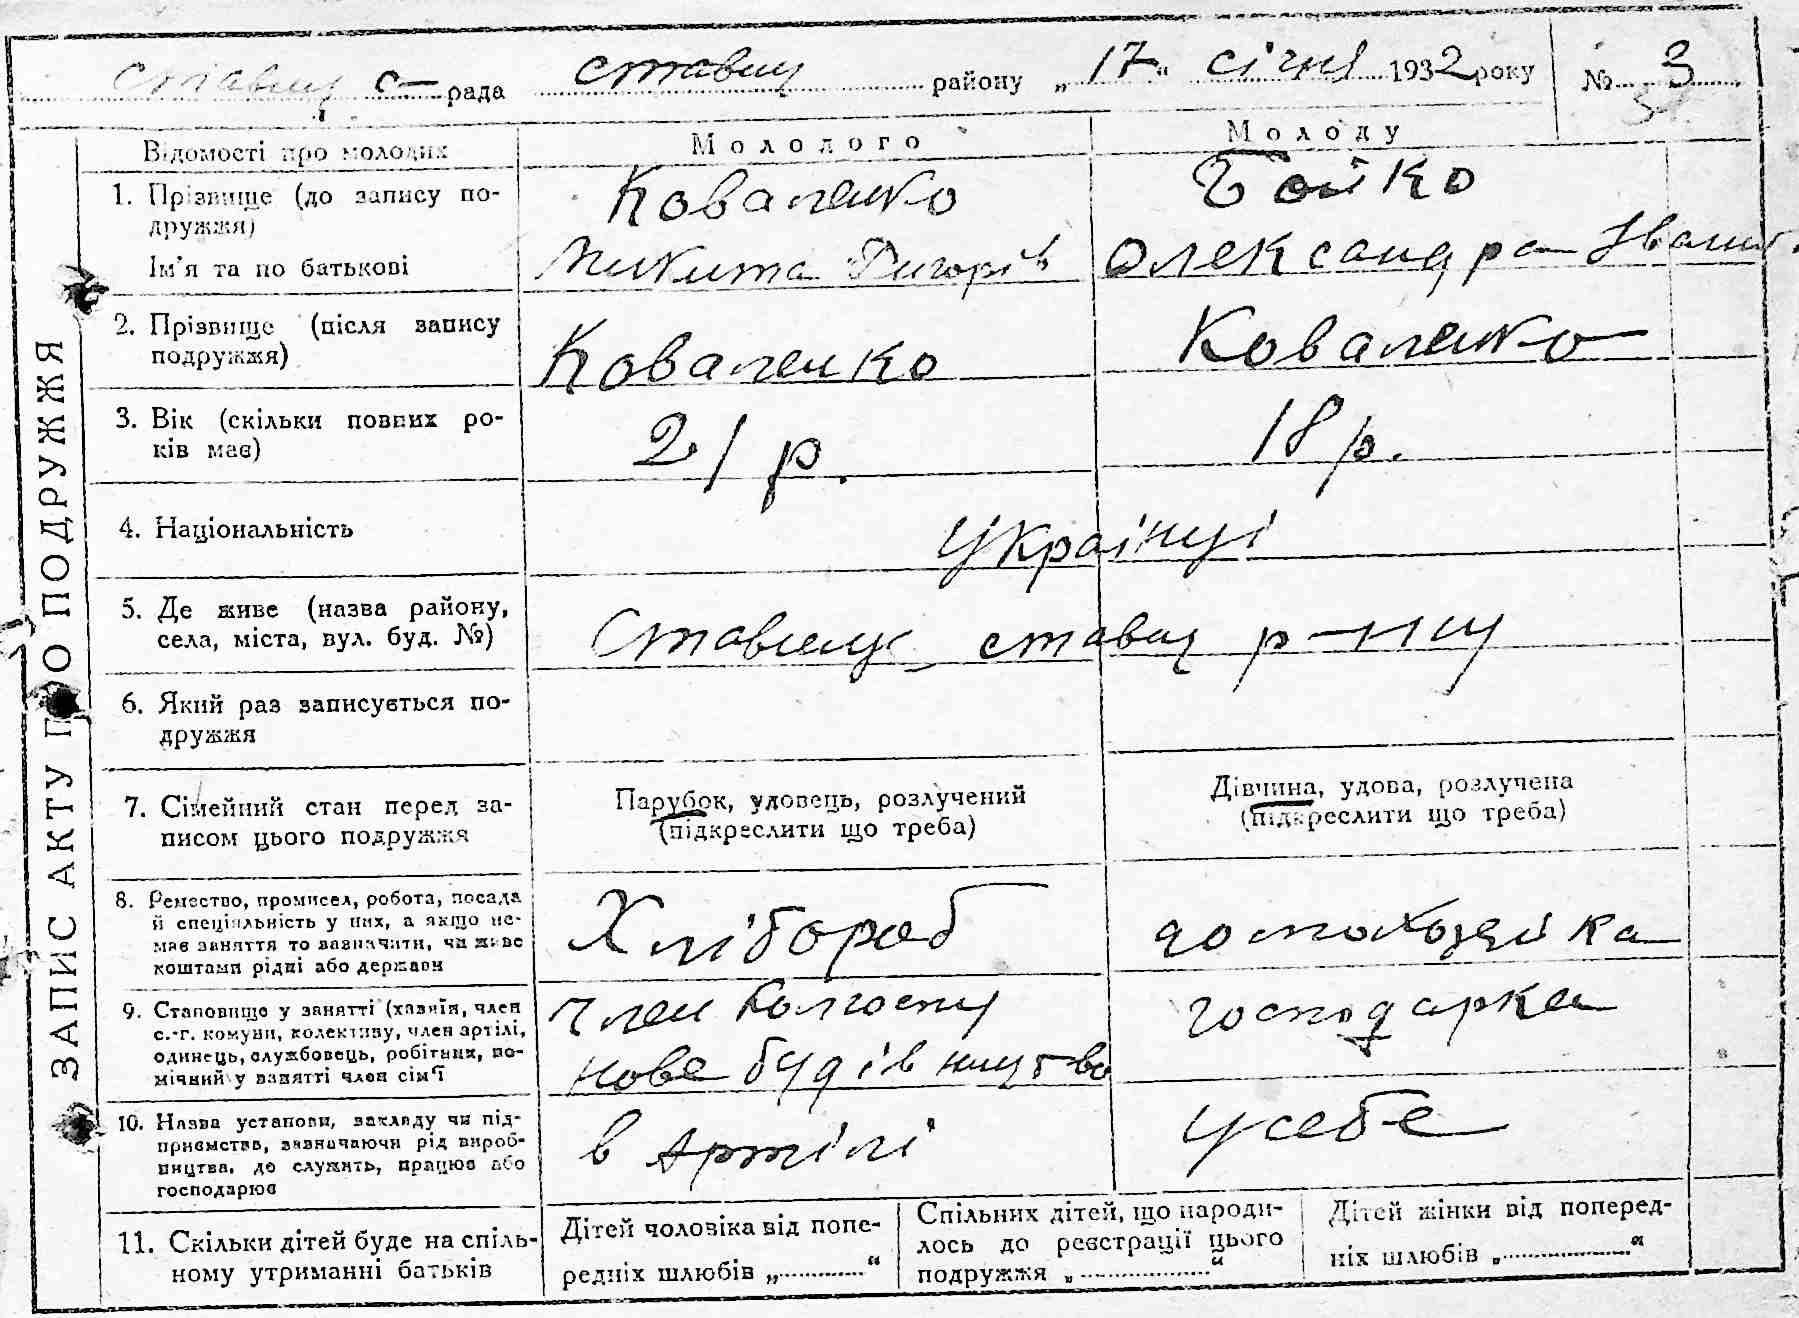 ставищ с– рада ставищ району „17“ січня 1932 року № 3
ЗАПИС АКТУ ПРО ПОДРУЖЖЯ
Відомості про молодих Молодого Молоду
1. Прізвище (до запису по- Коваленко Бойко
дружжя)
Ім'я та по батькові Микита Григорів Олександра Іванів.
2. Прізвище (після запису
подружжя) Коваленко Коваленко
3. Вік (скільки повних ро-
ків має) 21 р. 18 р.
4. Національність Українці
5. Де живе (назва району,
села, міста, вул. буд. №) Ставище ставищ р-ну
6. Який раз записується по-
дружжя
7. Сімейний стан перед за- Парубок, удовець, розлучений Дівчина, удова, розлучена
писом цього подружжя (підкреслити що треба) (підкреслити що треба)
8. Ремество, промисел, робота, посада
й спеціяльність у них, а якщо не-
має заняття то зазначити, чи живе Хлібороб домохозяйка
коштами рідні або держави
9. Становище у занятті (хазяїн, член член колгоспу господарка
с.-г. комуни, колективу, член артілі,
одинець, службовець, робітник, по- нове будівництво
мічний у занятті член сім'ї
10. Назва установи, закладу чи під-
приємства, зазначаючи рід вироб- в Артілі у себе
ництва, де служить, працює або
господарює
11. Скільки дітей буде на спіль-
ному утриманні батьків
Дітей чоловіка від попе-
редніх шлюбів „............“
Спільних дітей, що народи-
лось до реєстрації цього
подружжя „............“
Дітей жінки від поперед-
ніх шлюбів „............“